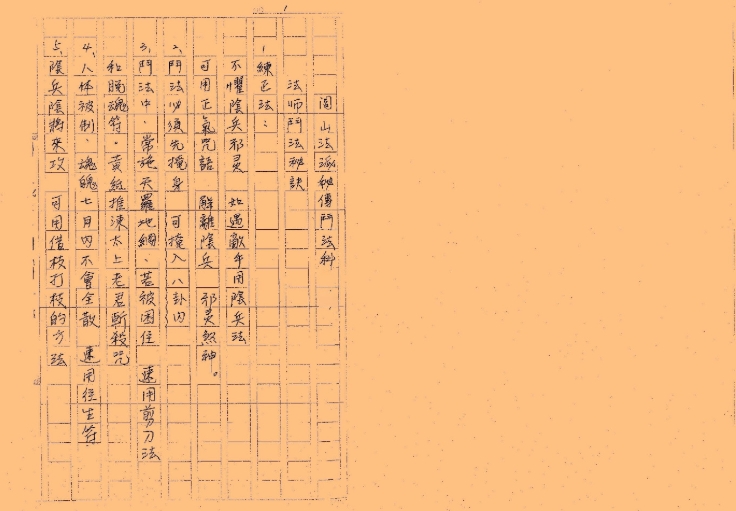 1
閭山法派秘傳鬥法科
法師鬥法秘訣
1練正法：
不懼陰兵邪灵 如遇敵手用陰兵法
可用正氣咒語 解離陰兵 邪灵煞神。
2、鬥法必須先掩身 可掩入八卦內
3、鬥法中、常施天羅地網、若被困住 速用剪刀法
和脫魂符。黃紙推涷太上老君斬殺咒
4、人体被制、魂魄七月內不會全散 速用往生符
5、陰兵陰將來攻 可用借枝打枝的方法